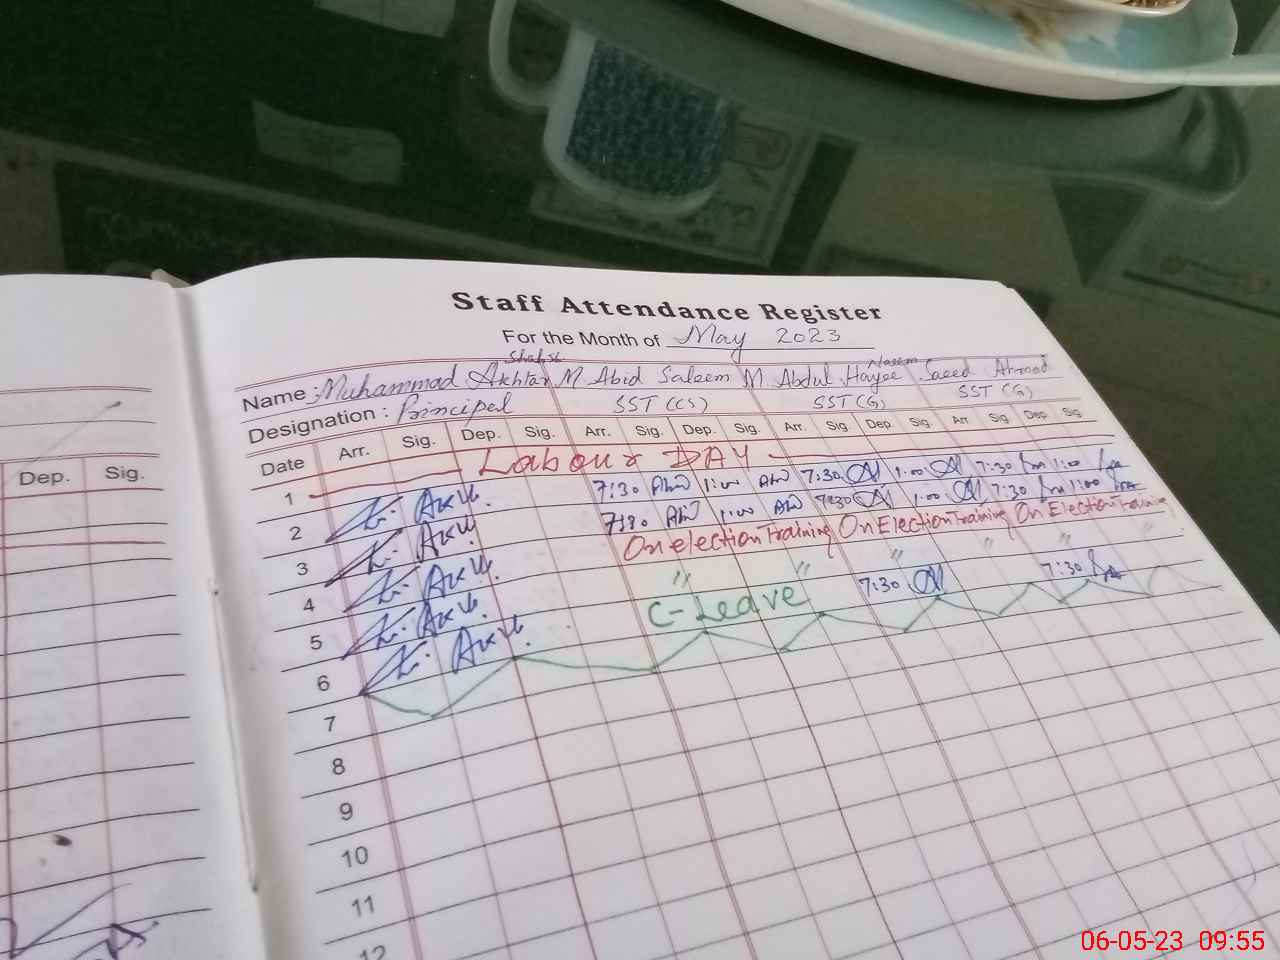 Staff Attendance Register
For the Month of May 2023
Name : Muhammad Akhtar M. Abid Saleem M. Abdul Hayee Naeem Saeed Ahmad
Designation : Principal SST (CS) SST (G) SST (G)
Date Arr. Sig. Dep. Sig. Arr. Sig. Dep. Sig. Arr. Sig. Dep. Sig. Arr. Sig. Dep. Sig.
1 Labour DAY
2 7:30 1:00 7:30 1:00 7:30 1:00
3 7:30 1:00 7:30 1:00 7:30 1:00
4 On election Training On Election Training On Election Training
5 " " " " " "
6 C-Leave 7:30 7:30
7
8
9
10
11
12
Dep. Sig.
06-05-23 09:55